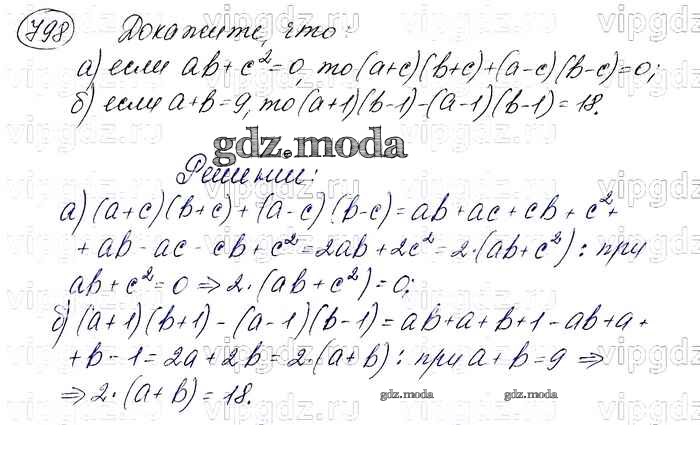 798 Докажите, что:
а) если ab+c²=0, то (a+c)(b+c)+(a-c)(b-c)=0;
б) если a+b=9, то (a+1)(b-1)-(a-1)(b-1)=18.
gdz.moda
Решении:
а) (a+c)(b+c)+(a-c)(b-c)=ab+ac+cb+c²+
+ab-ac-cb+c²=2ab+2c²=2·(ab+c²): при
ab+c²=0 ⇒ 2·(ab+c²)=0;
б) (a+1)(b+1)-(a-1)(b-1)=ab+a+b+1-ab+a+
+b-1=2a+2b=2·(a+b): при a+b=9 ⇒
⇒ 2·(a+b)=18.
gdz.moda gdz.moda